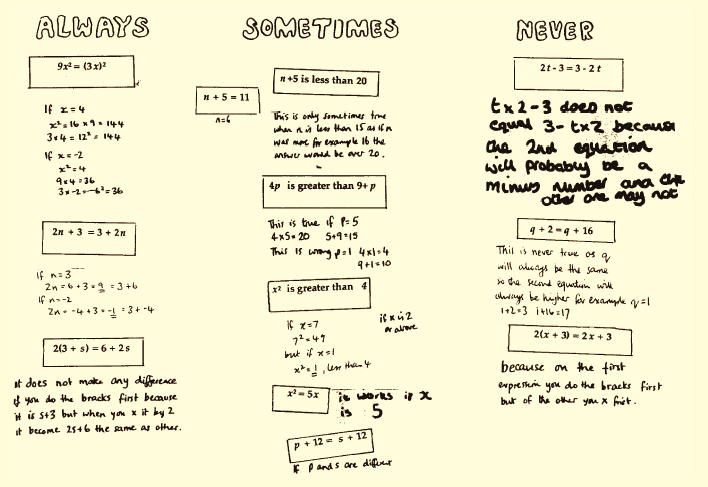 ALWAYS
9x² = (3x)²
If x = 4
x² = 16 x 9 = 144
3 x 4 = 12² = 144
If x = -2
x² = 4
9 x 4 = 36
3 x -2 = -6² = 36
2n + 3 = 3 + 2n
If n = 3
2n = 6 + 3 = 9 = 3 + 6
If n = -2
2n = -4 + 3 = -1 = 3 + -4
2(3 + s) = 6 + 2s
it does not make any difference
if you do the bracks first because
it is s+3 but when you x it by 2
it become 2s+6 the same as other.
SOMETIMES
n + 5 = 11
n=6
n+5 is less than 20
This is only sometimes true
when n is less than 15 as if n
was more for example 16 the
answer would be over 20.
4p is greater than 9+p
This is true if P=5
4x5=20 5+9=15
This is wrong p=1 4x1=4
9+1=10
x² is greater than 4
If x=7
7²=49
but if x=1
x²=1, less than 4
if x is 2
or above
x² = 5x
it works if x
is 5
p + 12 = s + 12
If P and s are different
NEVER
2t - 3 = 3 - 2t
tx2-3 does not
equal 3-tx2 because
the 2nd equation
will probably be a
minus number and the
other one may not
q + 2 = q + 16
This is never true as q
will always be the same
so the second equation will
always be higher for example q=1
1+2=3 1+16=17
2(x + 3) = 2x + 3
because on the first
expression you do the bracks first
but of the other you x first.